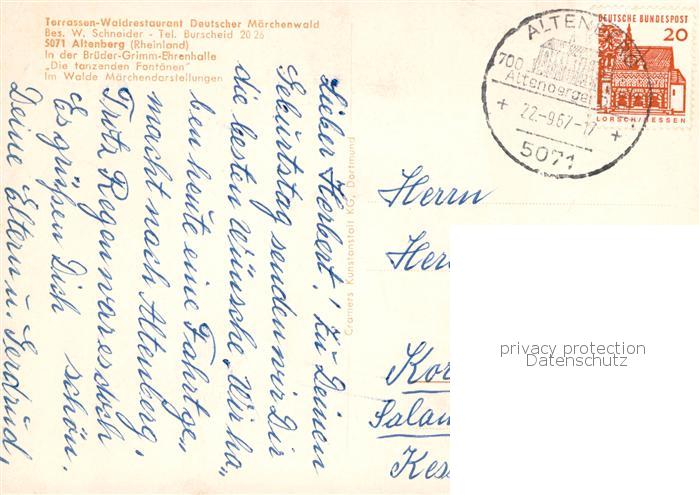 Terrassen-Waldrestaurant Deutscher Märchenwald
Bes. W. Schneider - Tel. Burscheid 20 26
5071 Altenberg (Rheinland)
In der Brüder-Grimm-Ehrenhalle
„Die tanzenden Fontänen"
Im Walde Märchendarstellungen
Lieber Herbert! Zu Deinem
Geburtstag senden wir Dir
die besten Wünsche. Wir ha„
ben heute eine Fahrt ge„
macht nach Altenberg,
Trotz Regen war es doch
schön.
Es grüßen Dich
Deine Eltern u. Gerdrud,
Cramers Kunstanstalt KG, Dortmund
ALTENBERG
700
Altenberger
22.-9.67-17
5071
DEUTSCHE BUNDESPOST
20
LORSCH/HESSEN
Herrn
Her
Kor
Kes
privacy protection
Datenschutz